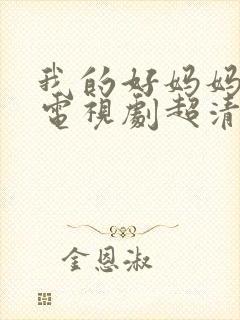 我的好妈妈
電視劇超清
金恩淑